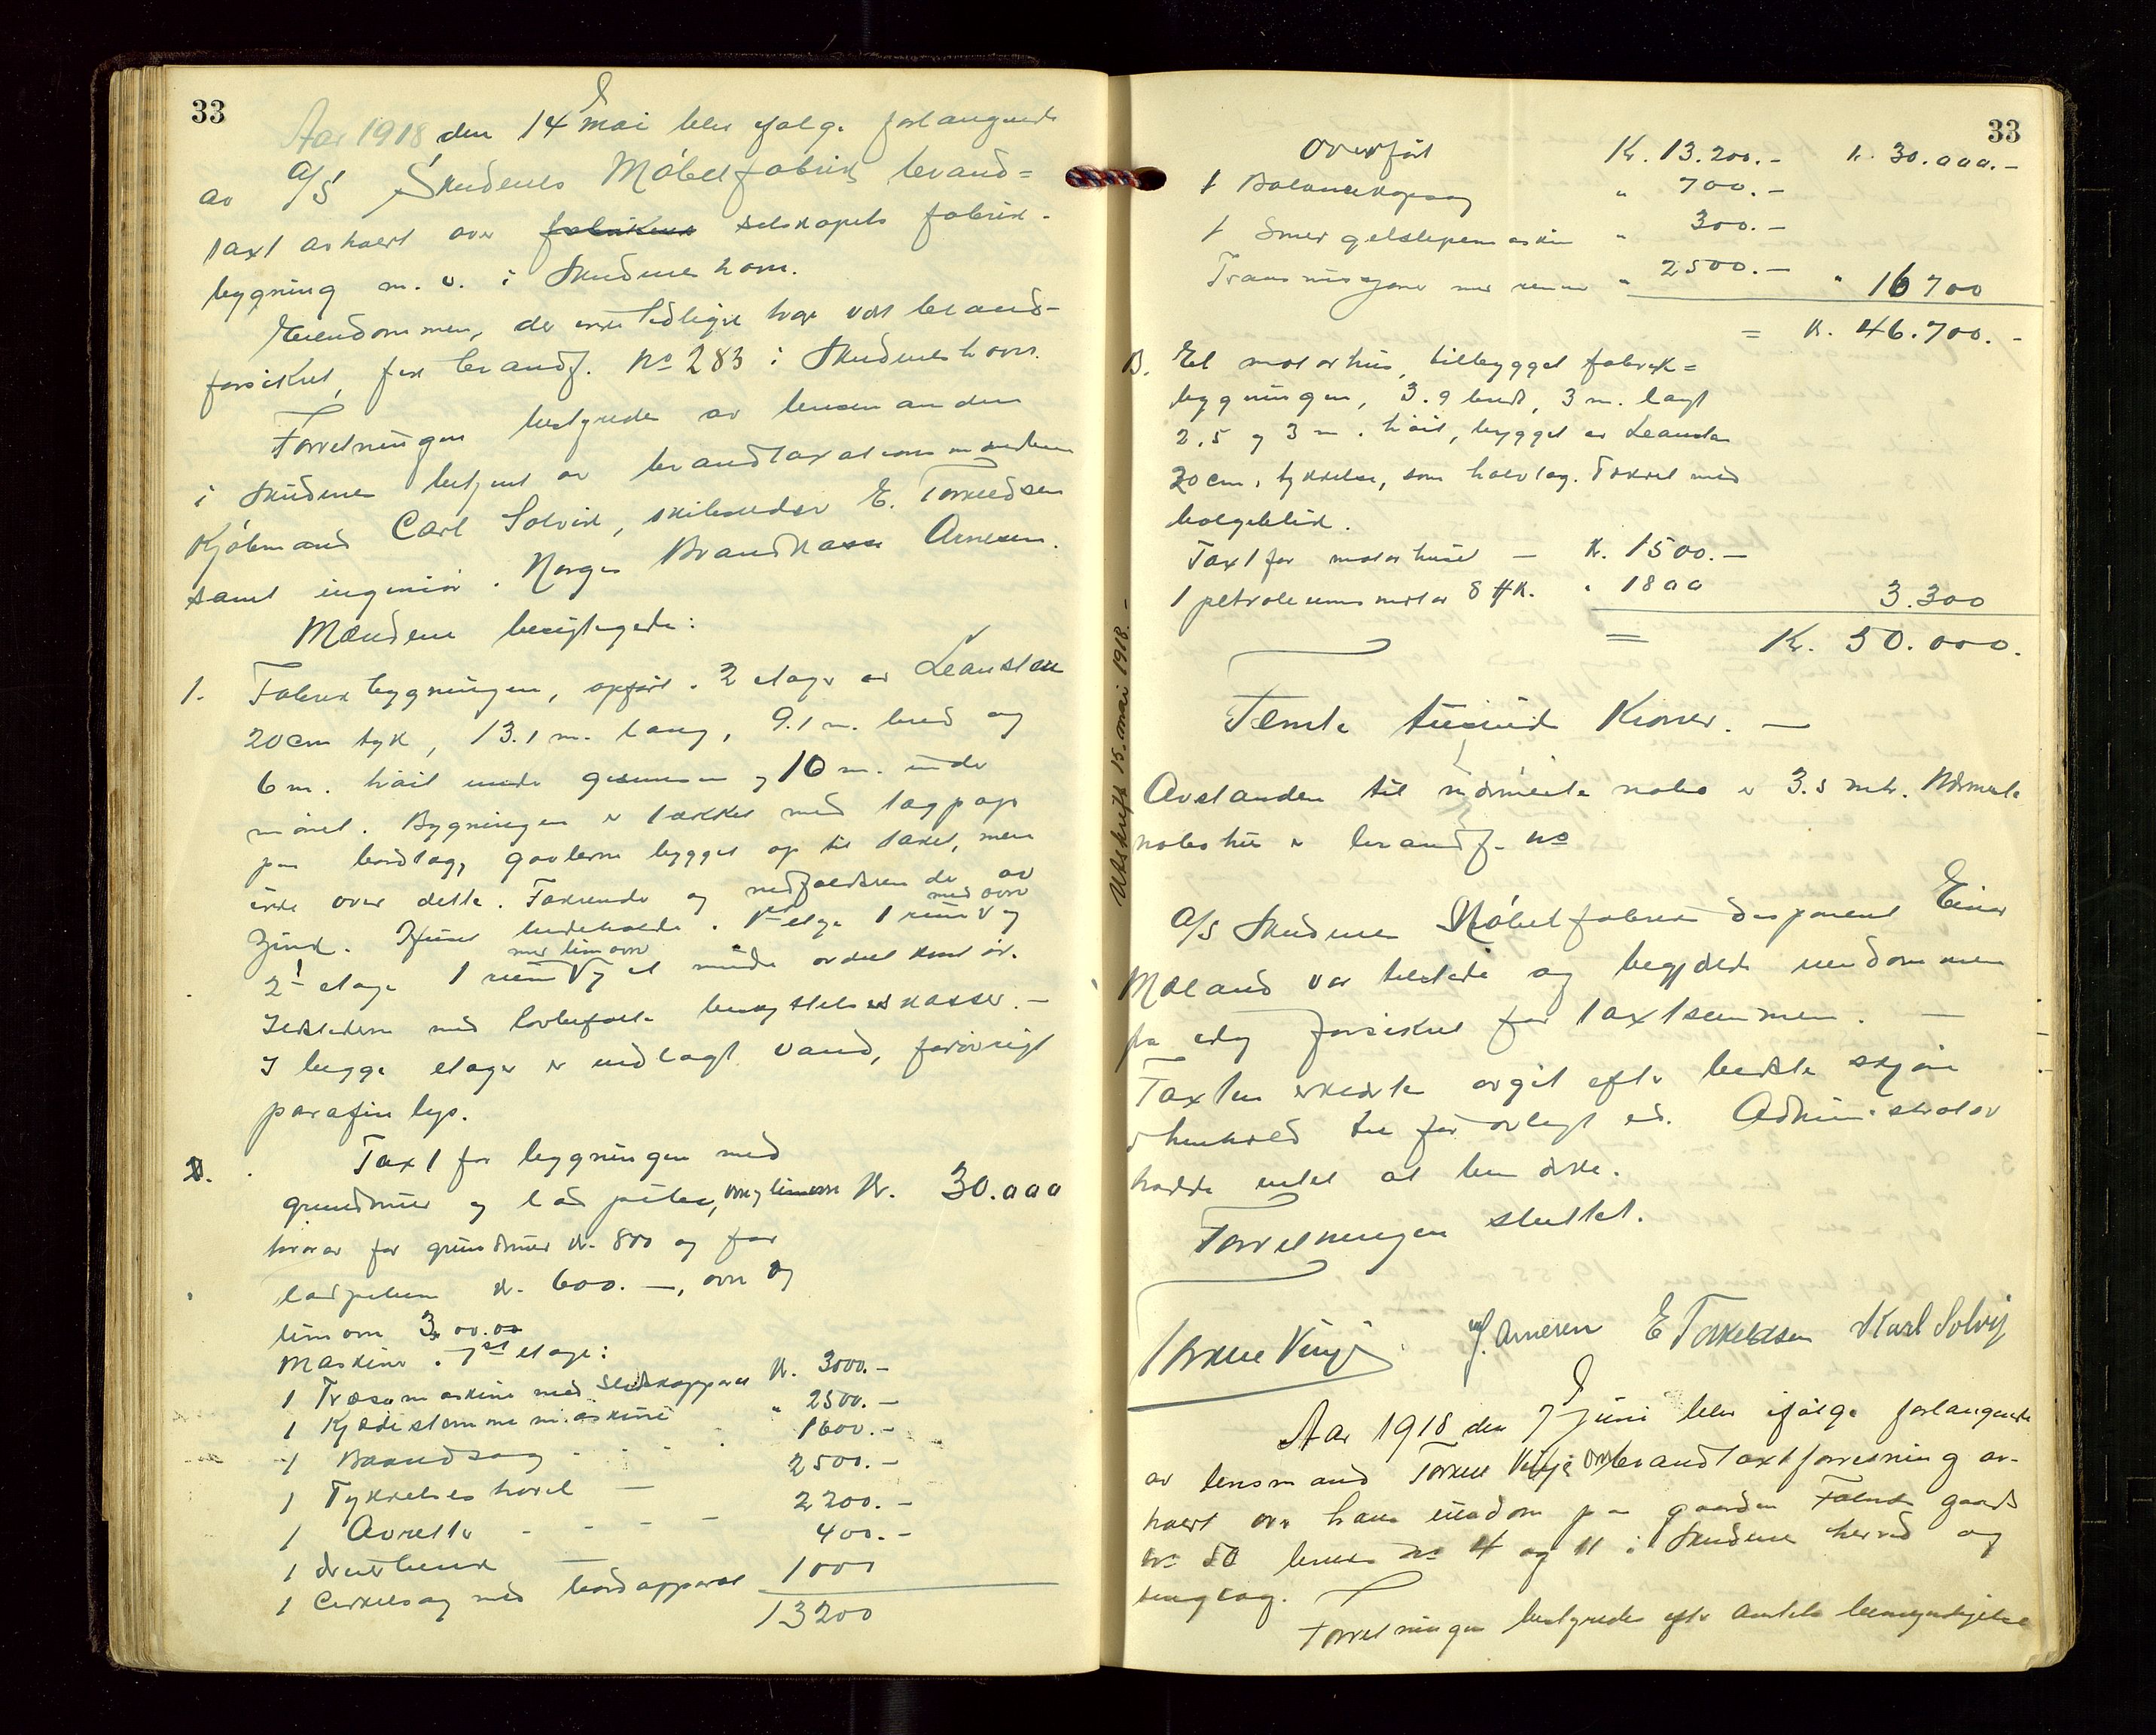 33
Aar 1918 den 14 mai blev ifølge forlangende
av A/S Skudenes Møbelfabrik brand=
taxt avholdt over fabrikens selskapets fabrik-
bygning m. v. i Skudeneshavn.
Eiendommen, der ikke tidligere har vært brand-
forsikret, fik brandf. No 283 i Skudeneshavn.
Forretningen bestyredes av lensmanden
i Skudenes betjent av brandtaxationsmændene
Kjøbmand Carl Solvik, skibsreder E. Torkeldsen
samt ingeniør i Norges Brandkasse Arnesen.
Mændene besigtigede:
1. Fabrikbygningen, opført i 2 etager av Leansten
20 cm tyk, 13.1 m. lang, 9.1 m. bred og
6 m. høit under gesimsen og 10 m. under
mønet. Bygningen er tækket med tagpap
paa bordtag, gavlerne bygget op til taket, men
ikke over dette. Takrender og nedfaldsrender av
zink. Huset indeholder i 1ste etage 1 rum med ovn og
2! etage 1 rum med limovn og et mindre avdelt kontor.
Ildstederne med lovbefalte beskyttelseskasser. —
I begge etager er indlagt vand, forøvrigt
parafinlys.
Taxt for bygningen med
grundmur og 1 ad piber, ovn og limovn Kr. 30.000
hvorav for grundmur kr. 800 og for
kr. 600. —, ovn og
limovn 300.00
Maskiner i 1ste etage:
1 Træsemaskine med Sledkapparat Kr. 3000.-
1 Kjædestemmemaskine " 2500.-
1 Baandsag - - - 1600.-
1 Tykkelseshøvel — 2500.-
1 Avretter - - - - 2200.-
1 dreiebenk — 400.-
1 Cirkelsag med bordapparat 1000
13200
33
Overført Kr. 13.200.- k. 30.000.-
1 Balancekapsag " 700.-
1 Smergelslipemaskin " 300.-
Transmissioner med remmer " 2500.- " 16700
= K. 46.700.-
B. Et motorhus, tilbygget fabrik=
bygningen, 3.9 bredt, 3 m. langt
2.5 og 3 m. høit, bygget av Leansten
20 cm. tykkelse, som halvtag. Tækket med
bølgeblik.
Taxt for motorhuset — K. 1500.—
1 petroleumsmotor 8 HK. " 1800 3.300
= Kr. 50.000.
Femti tusind Kroner. —
Avstanden til nærmeste nabo er 3.5 mtr. Nærmeste
nabohus er brandf. no
A/S Skudenes Møbelfabrik disponent Einar
Mæland var tilstede og begjærte eiendommen
forsikret for taxtsummen. —
Taxten erklærtes avgit efter bedste skjøn
i henhold til før avlagt ed. Administrator
hadde intet at bemerke.
Forretningen sluttet.
Torkel Vinje J. Arnesen E Torkeldsen Karl Solvig
Aar 1918 den 7 juni blev ifølge forlangende
av lensmand Torkel Vinje brandtaxtforretning av-
holdt over hans eiendom paa gaarden Falnes gaards
nr 50 bruks nr 4 og 11 i Skudenes herred og
tinglag.
Forretningen bestyredes efter amtets bemyndigelse
Utskrift 15. mai 1918. -